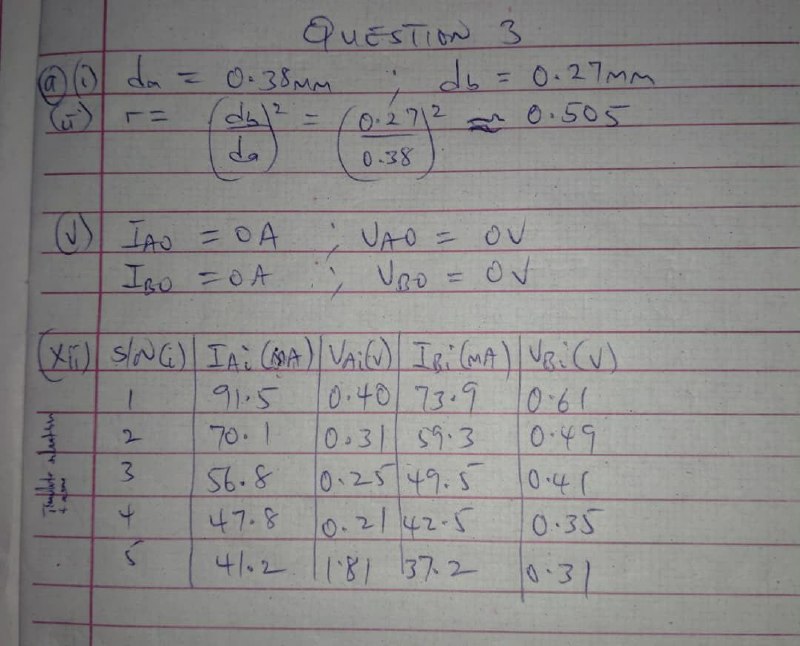 QUESTION 3
(a) (i) da = 0.38mm ; db = 0.27mm
(ii) r = (db/da)² = (0.27/0.38)² ≈ 0.505
(v) IA0 = 0A ; VA0 = 0V
IB0 = 0A ; VB0 = 0V
(xii) S/N(i) IAi(mA) VAi(V) IBi(mA) VBi(V)
1 91.5 0.40 73.9 0.61
2 70.1 0.31 59.3 0.49
3 56.8 0.25 49.5 0.41
4 47.8 0.21 42.5 0.35
5 41.2 1.81 37.2 0.31